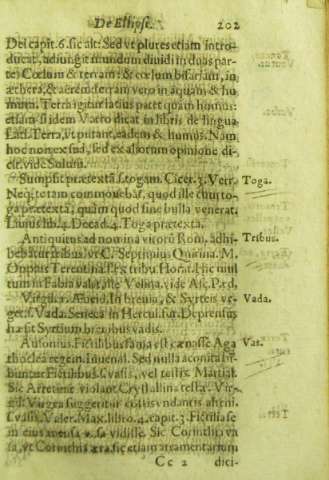 De Ellipse. 202
Dei capit. 6. sic ait: Sed ut plures etiam intro-
ducat, adiungit mundum dividi in duas par-
tes Cœlum & terram: & cœlum bifariam, in
æthera, & aëra: terram vero in aquam & hu-
mum. Terra igitur latius patet quam humus:
etiamsi idem Varro dicat in libris de lingua
Lat. Terra, ut putant, eadem & humus. Nam
hoc non ex sua, sed ex aliorum opinione di-
cit. vide Solum.
Sumpsit prætextã s. togam. Cicer. 3. Verr. Toga.
Neq; te tam commovebat, quod ille cum to-
ga prætexta, quam quod sine bulla venerat.
Livius lib. 4. Decad. 4. Toga prætexta.
Antiquitus ad nomina virorũ Rom. adhi- Tribus.
bebatur tribus. ut C. Septimius Quirina. M.
Oppius Terentina. s. ex tribu Horat. Hic mul
tum in Fabia valet, ille Velina. vide Asc. Pæd.
Virgil. 1. Æneid. In brevia, & Syrteis ur- Vada.
get. s. Vada. Seneca in Hercul. fur. Deprensus
hæsit Syrtium brevibus vadis.
Ausonius. Fictilibus fama est cœnasse Aga Vas.
thoclea regem. Iuvenal. Sed nulla aconita bi-
buntur Fictilibus. s. vasis, vel testis. Martial.
Sic Arretinæ violant Crystallina testæ. Vir-
Valer. Max. libro. 4. capit. 3. Fictilia se
in eius vidisse. Sic Corinthia va
sa, ut Corinthia æra, sic etiam atramentarium
Cc 2 dici-